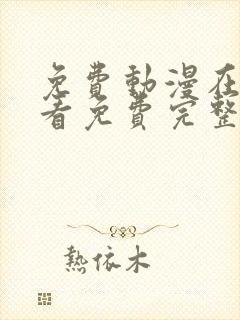 免費動漫在
看免費完整
熱依木